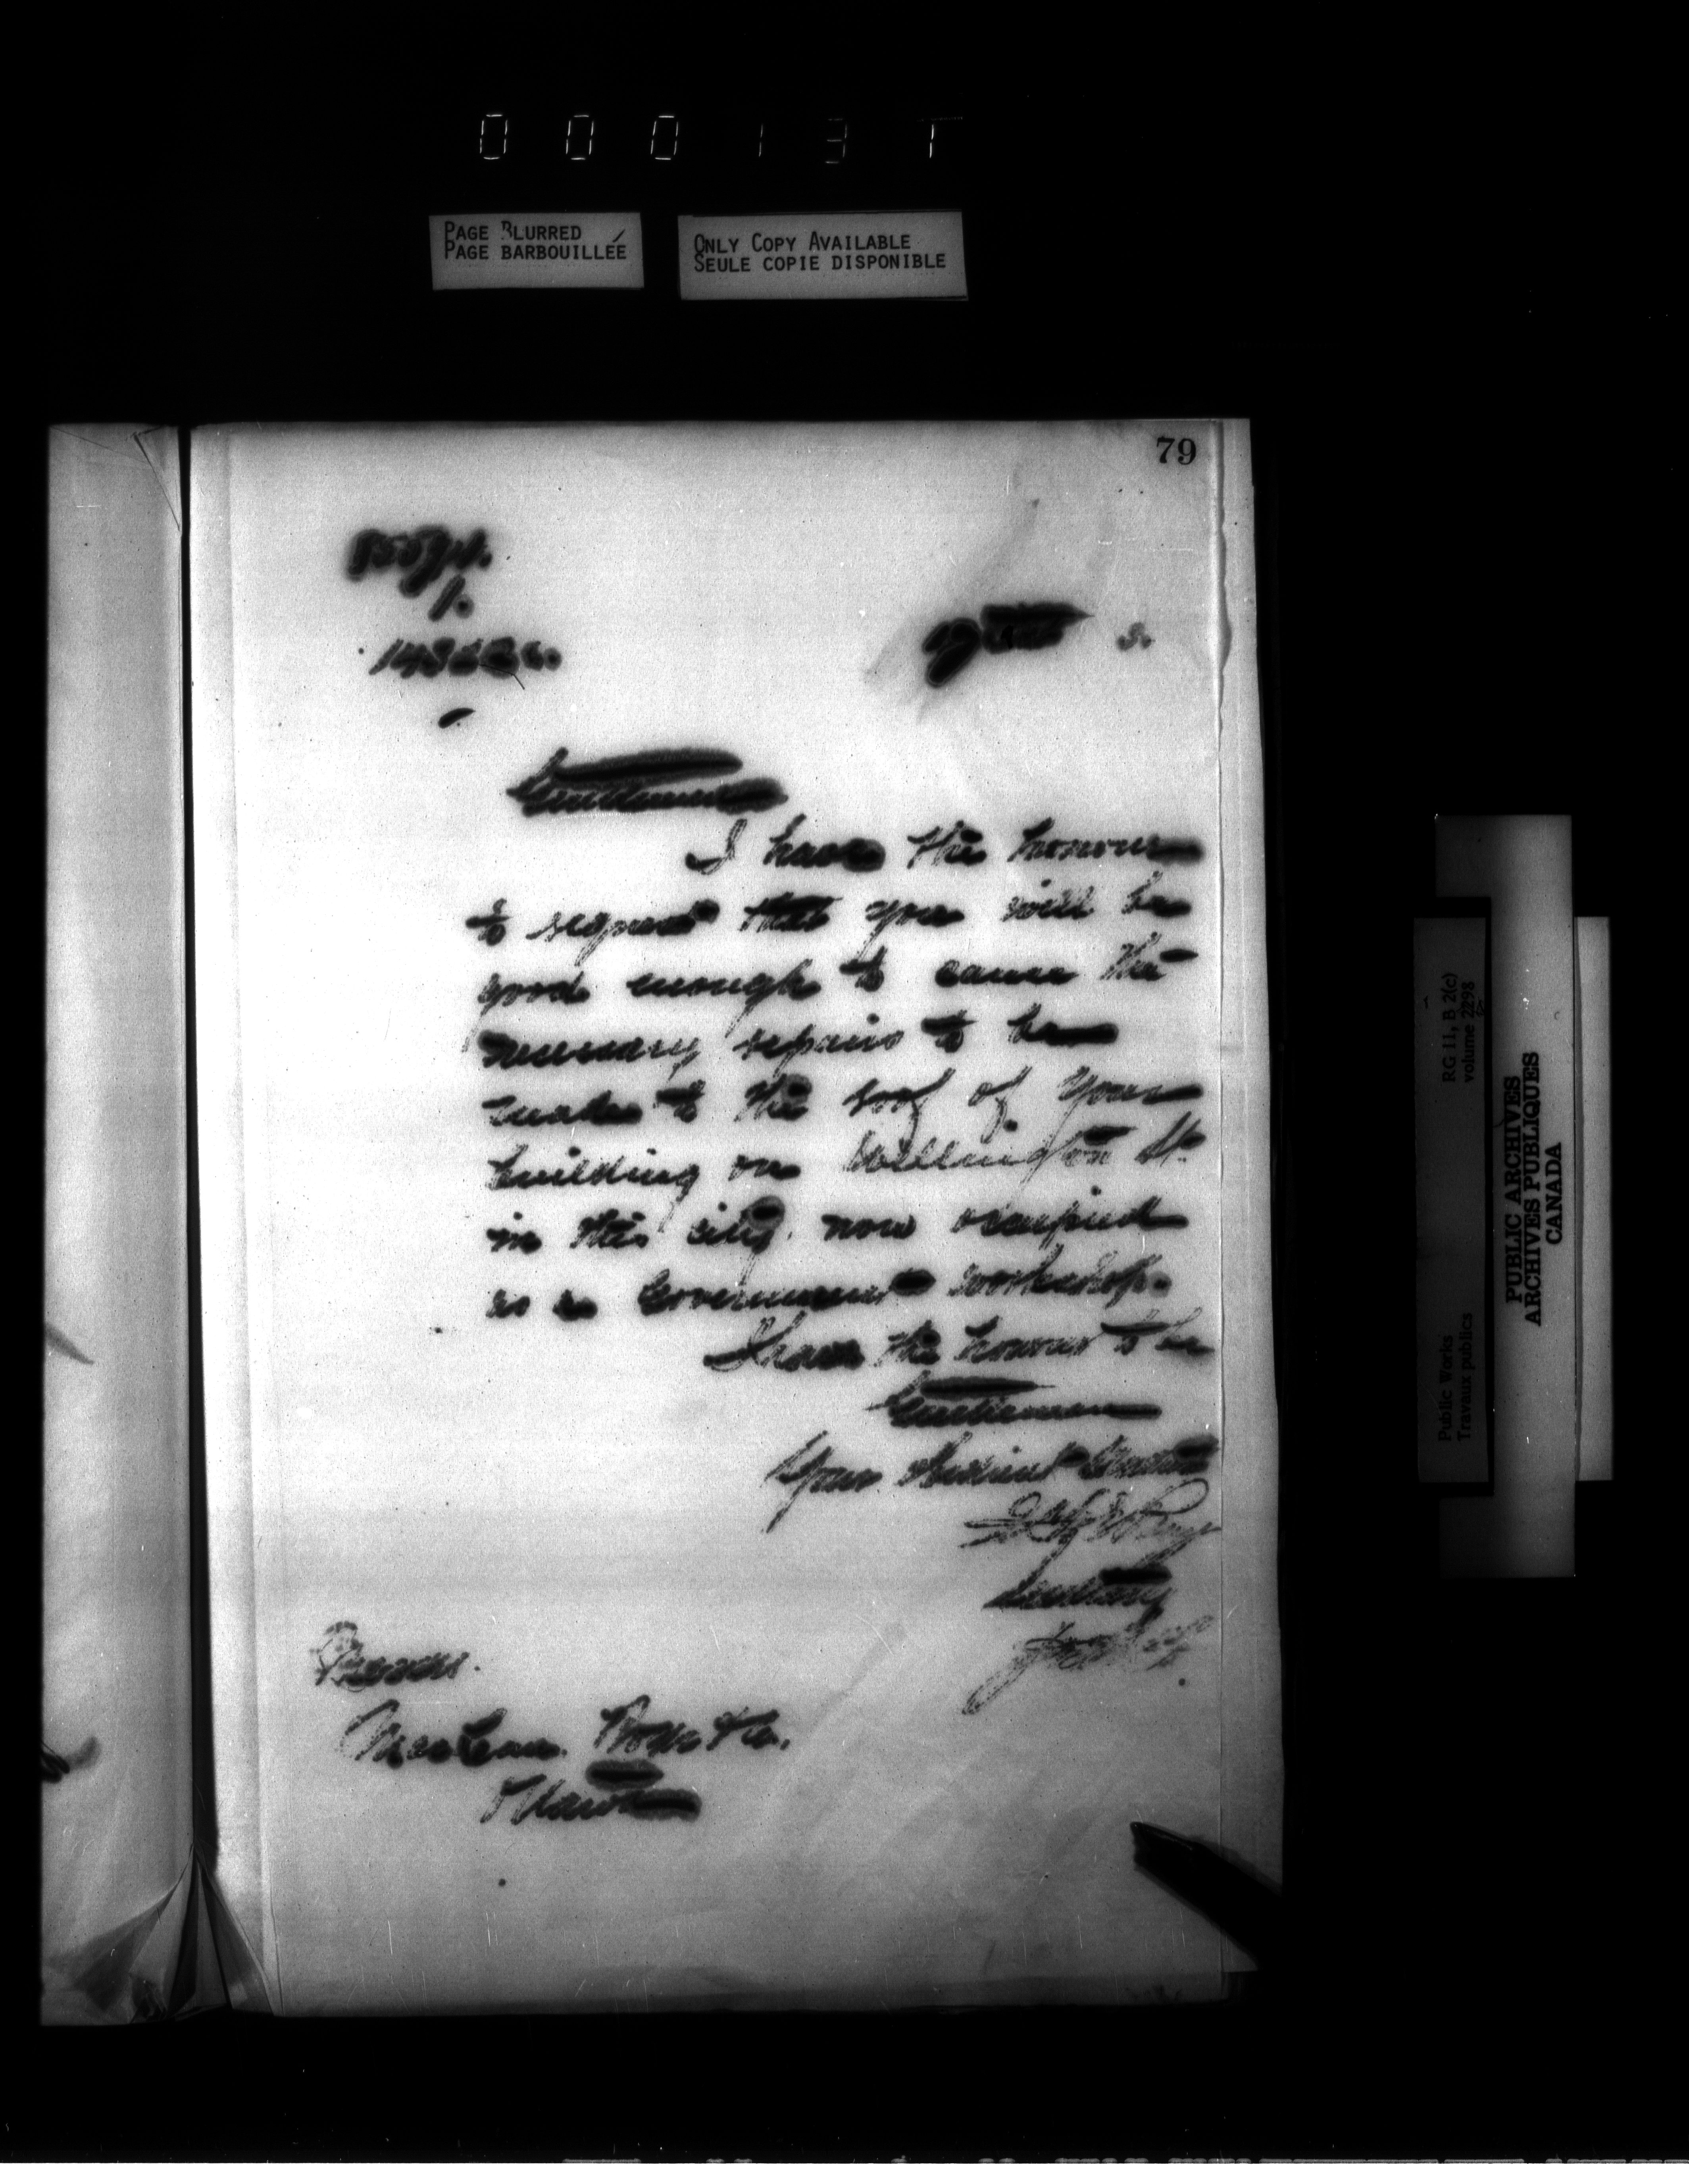 0 0 0 1 3 T
PAGE BLURRED
PAGE BARBOUILLÉE
ONLY COPY AVAILABLE
SEULE COPIE DISPONIBLE
79
1.
3.
Gentlemen
I have the honour
to request that you will be
good enough to cause the
necessary repairs to be
made to the roof of your
building on Wellington St.
in this city now occupied
as a Government workshop.
I have the honour to be
Gentlemen
Your obedient Servant
Secretary
Messrs.
MacLean. Roger & Co.
Ottawa
RG 11, B 2(c)
volume 2298
Public Works
Travaux publics
PUBLIC ARCHIVES
ARCHIVES PUBLIQUES
CANADA